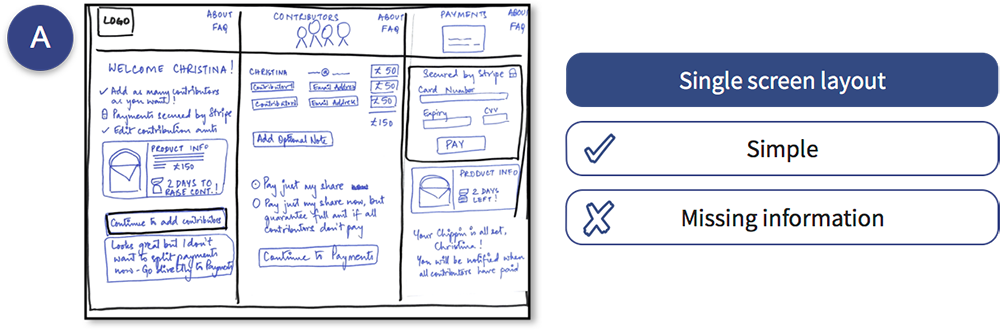 A
LOGO
ABOUT
FAQ
WELCOME CHRISTINA!
Add as many contributors
as you want!
Payments secured by Stripe
Edit contribution amts
PRODUCT INFO
£150
2 DAYS TO
RAISE CONT.!
Continue to add contributors
Looks great but I don't
want to split payments
now - Go directly to Payments
CONTRIBUTORS
ABOUT
FAQ
CHRISTINA
£50
Contributors
Email Address
£50
Contributors
Email Address
£50
£150
Add Optional Note
Pay just my share
Pay just my share now, but
guarantee full amt if all
contributors don't pay
Continue to Payments
PAYMENTS
ABOU
FAQ
Secured by Stripe
Card Number
Expiry
CVV
PAY
PRODUCT INFO
2 DAYS
LEFT!
Your Chippin is all set,
Christina!
You will be notified when
all contributors have paid
Single screen layout
Simple
Missing information